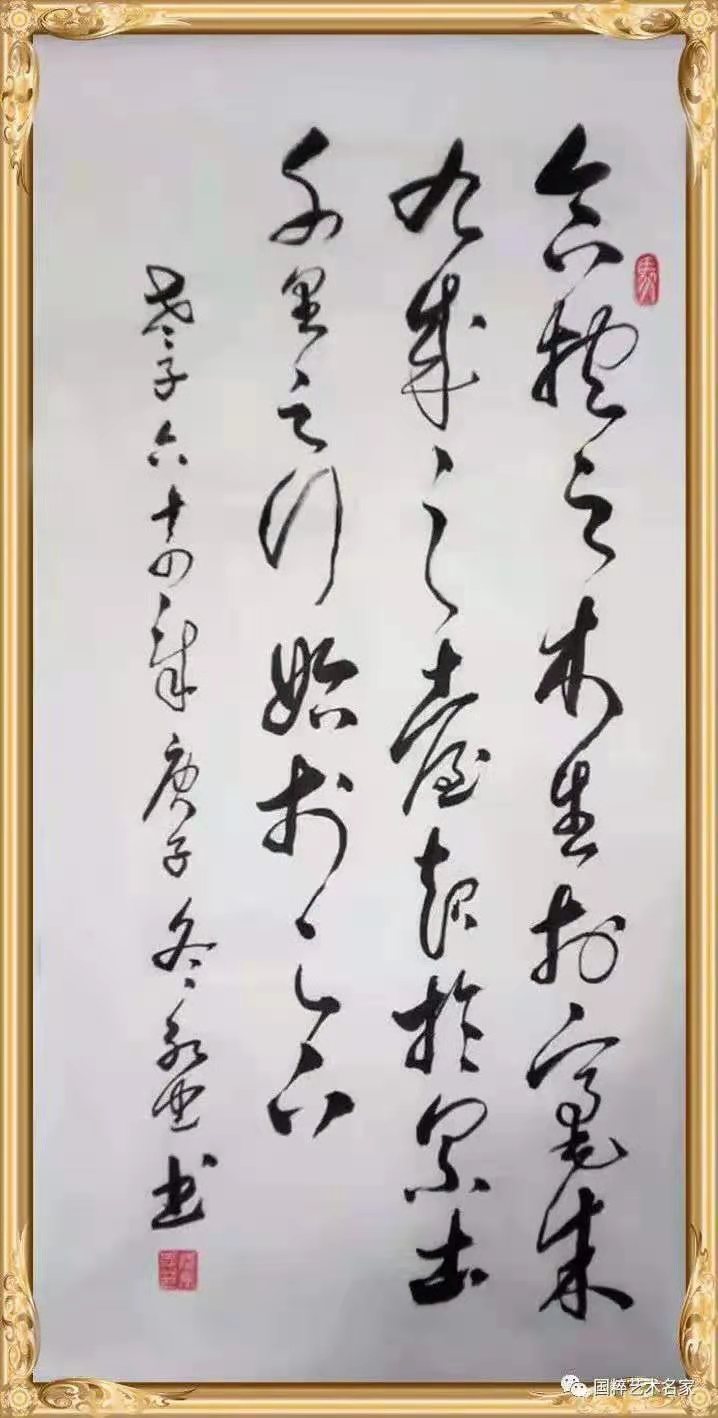 合抱之木生於毫末
九成之臺起於累土
千里之行始於足下
老子六十四章庚子冬書
国粹艺术名家